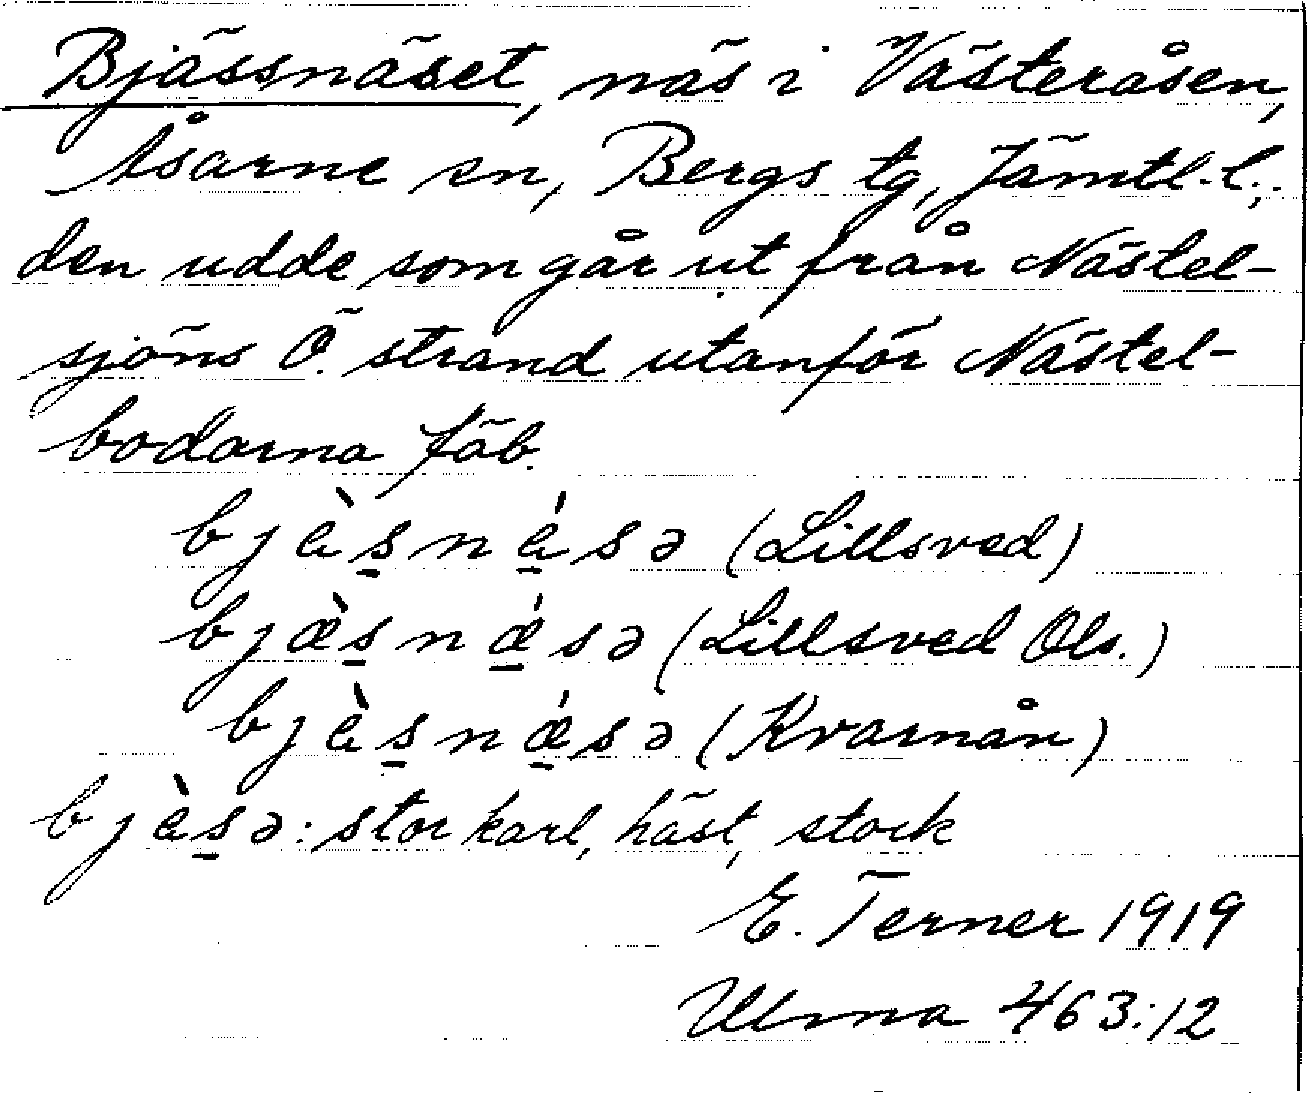 Bjässnäset, näs i Västeråsen,
Åsarne sn, Bergs tg, Jämtl. l.;
den udde som går ut från Nästel-
sjöns Ö. strand utanför Nästel-
bodarna fäb.
bjɛ̀s̲nɛ̲́sə (Lillsved)
bjæ̀s̲nǽ̲sə (Lillsved Ols.)
bjɛ̀s̲nǽ̲sə (Kvarnån)
bjɛ̀s̲ə: stor karl, häst, stock
E. Terner 1919
Ulma 463:12